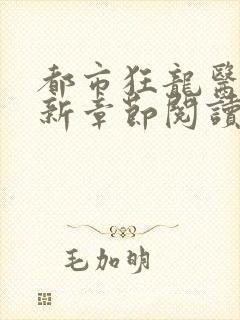 都市狂龍醫
新章節閱讀
毛加明